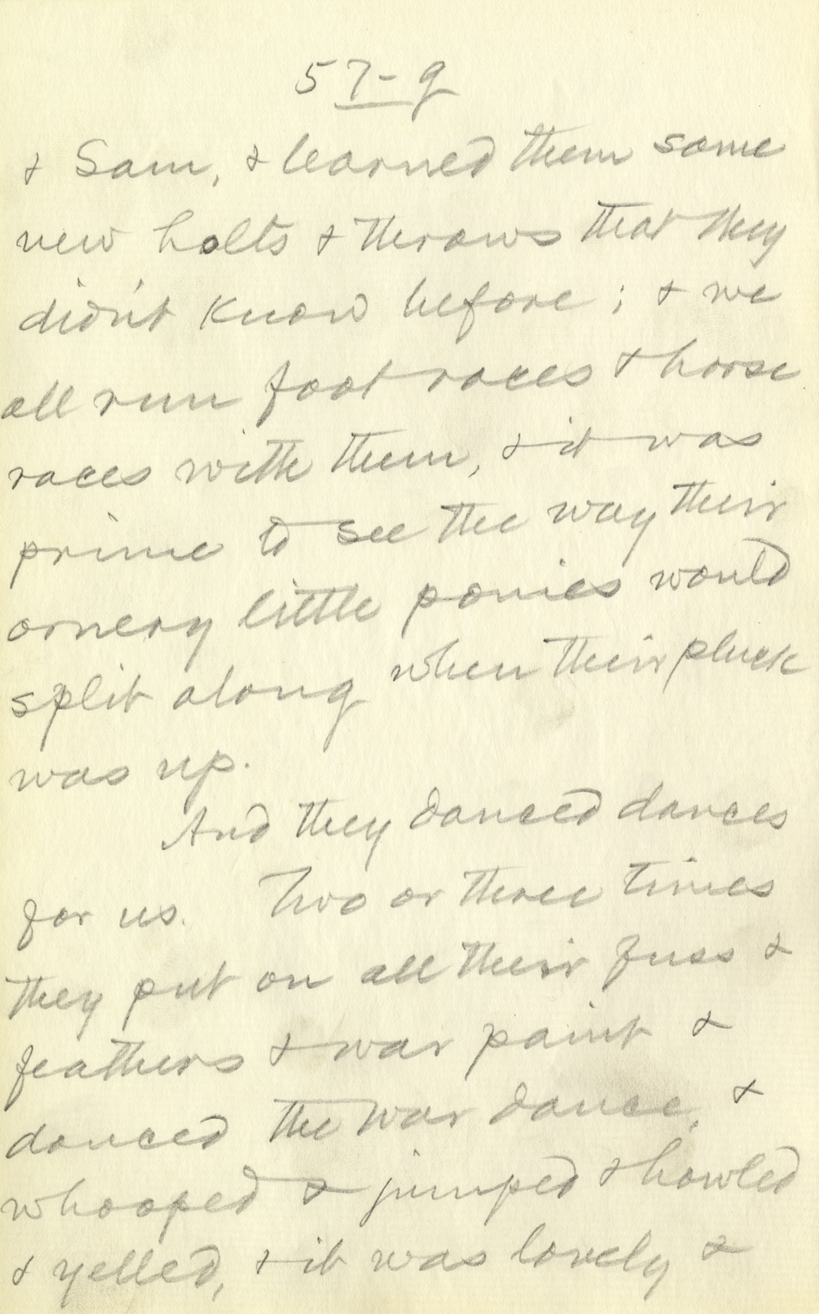 57-g
& Sam, & learned them some
new holts & throws that they
didn't know before; & we
all run foot races & horse
races with them, & it was
prime to see the way their
ornery little ponies would
split along when their pluck
was up.
And they danced dances
for us. Two or three times
they put on all their fuss &
feathers & war paint &
danced the war dance, &
whooped & jumped & howled
& yelled, & it was lovely &